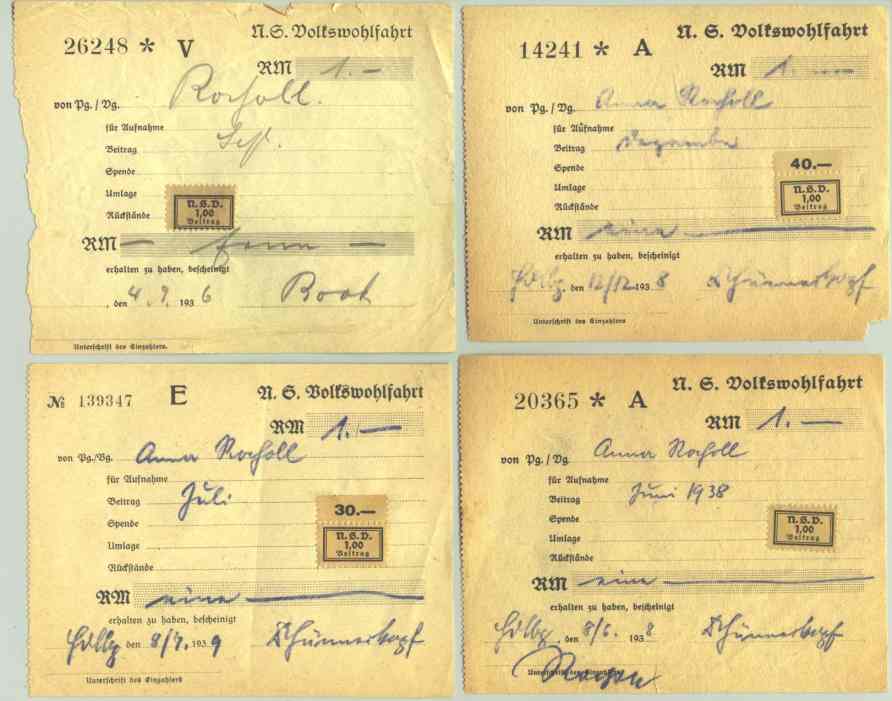 26248 * V
N.S. Volkswohlfahrt
RM 1.-
von Pg./Vg. Rocholl.
für Aufnahme
Beitrag Sept.
Spende
Umlage
Rückstände
N.S.V.
1,00
Beitrag
RM
erhalten zu haben, bescheinigt
, den 4. 9. 1936
Unterschrift des Einzahlers.
14241 * A
N. S. Volkswohlfahrt
RM 1.—
von Pg./Vg. Anna Rocholl
für Aufnahme
Beitrag Dezember
Spende
Umlage
Rückstände
40.—
N.S.V.
1,00
Beitrag
RM eine
erhalten zu haben, bescheinigt
Hdlbg. den 12/12 1938 Dhünnerkopf
Unterschrift des Einzahlers
№ 139347 E
N. S. Volkswohlfahrt
RM 1.—
von Pg./Vg. Anna Rocholl
für Aufnahme
Beitrag Juli
Spende
Umlage
Rückstände
30.—
N.S.V.
1,00
Beitrag
RM eine
erhalten zu haben, bescheinigt
Hdlbg. den 8/7. 1939
Unterschrift des Einzahlers
20365 * A
N. S. Volkswohlfahrt
RM 1.—
von Pg./Vg. Anna Rocholl
für Aufnahme
Beitrag Juni 1938
Spende
Umlage
Rückstände
N.S.V.
1,00
Beitrag
RM eine
erhalten zu haben, bescheinigt
Hdlbg., den 8/6. 1938